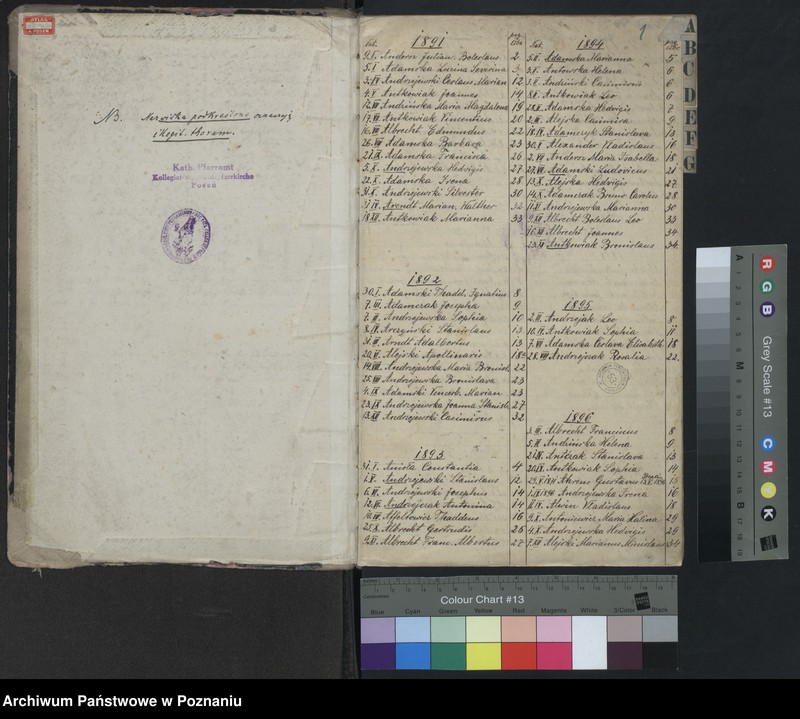 NB. Nazwiska podkreślone
Kath. Pfarramt
Posen
1
1891
Nat.
9.I. Anders Julian Boleslaus 2
5.I. Adamska Lucina Severina
3.IV Andrzejewski Ceslaus Marian 12
4.V Antkowiak Joannes 14
12.VII Andruska Maria Magdalena 19
17.VI Antkowiak Vincentius 20
16.VII Albrecht Edmundus 22
26.VII Adamska Barbara 23
21.IX Adamska Francisca 26
5.X Andrzejewska Hedvigis 27
22.X Adamska Irena 28
31.X Andrzejewski Silvester 30
Arendt Marian Walther 32
18.XII Antkowiak Marianna 33
1892
30.I. Adamski Thadd. Ignatius 8
7.III. Adamczak Josepha 9
7.II. Andrzejewska Sophia 10
8.IV Arczyński Stanislaus 13
31.III. Arndt Adalbertus 13
20.V. Alejski Apollinaris 18
19.VIII. Andrzejewska Maria Bronisl. 22
25.VIII Andrzejewska Bronislava 23
4.IX Adamski Vincent. Marian 23
23.IX Andrzejewska Joanna Stanisl. 27
13.XII Andrzejewski Casimirus 32
1893
31.I. Aniola Constantia 4
1.V. Andrzejewski Stanislaus 12
6.VI. Andrzejewski Josephus 14
12.VI. Andrzejczak Antonina 14
10.VI Affeltowicz Thaddeus 16
25.X Albrecht Gertrudis 26
9.XI. Albrecht Franc. Albertus 27
Nat.
1894
5.II. Adamska Marianna 5
3.I. Antowska Helena 6
5.I. Andruski Casimirus 6
8.I. Antkowiak Leo 6
Adamska Hedvigis 7
2.III. Alejska Casimira 9
18.IV. Adamczyk Stanislava 13
30.V. Alexander Vladislaus 16
2.VI. Anders Maria Isabella 18
27.VII. Adamski Ludovicus 21
13.X Alejska Hedvigis 27
14.X Adamczak Bruno Carolus 28
11.XI Andrzejewska Marianna 30
9.XII Albrecht Boleslaus Leo 33
16.XII Albrecht Joannes 34
23.XII Antkowiak Bronislaus 34
1895
2.II. Andrzejak Leo 8
10.IV. Antkowiak Sophia 11
7.VI Adamska Ceslava Elisabeth 18
28.VIII Andrzejczak Rosalia 22
1896
3.III. Albrecht Franciscus 8
5.II Andruska Helena 9
21.IV. Antczak Stanislava 13
20.IV. Antkowiak Sophia 14
Ahrens Gustavus 15
1.VI.1896 Andrzejewska Irena 16
Alvin Vladislaus 18
9.X. Antoniewicz Maria Halina 29
4.X. Andrzejewska Hedvigis 29
7.XII Alejski Marianus Minislaus 34
A
B
C
D
E
F
G
R
G
B
Grey Scale #13
C
M
Y
K
A
M
B
Colour Chart #13
Blue Cyan Green Yellow Red Magenta White 3/Color Black
Archiwum Państwowe w Poznaniu